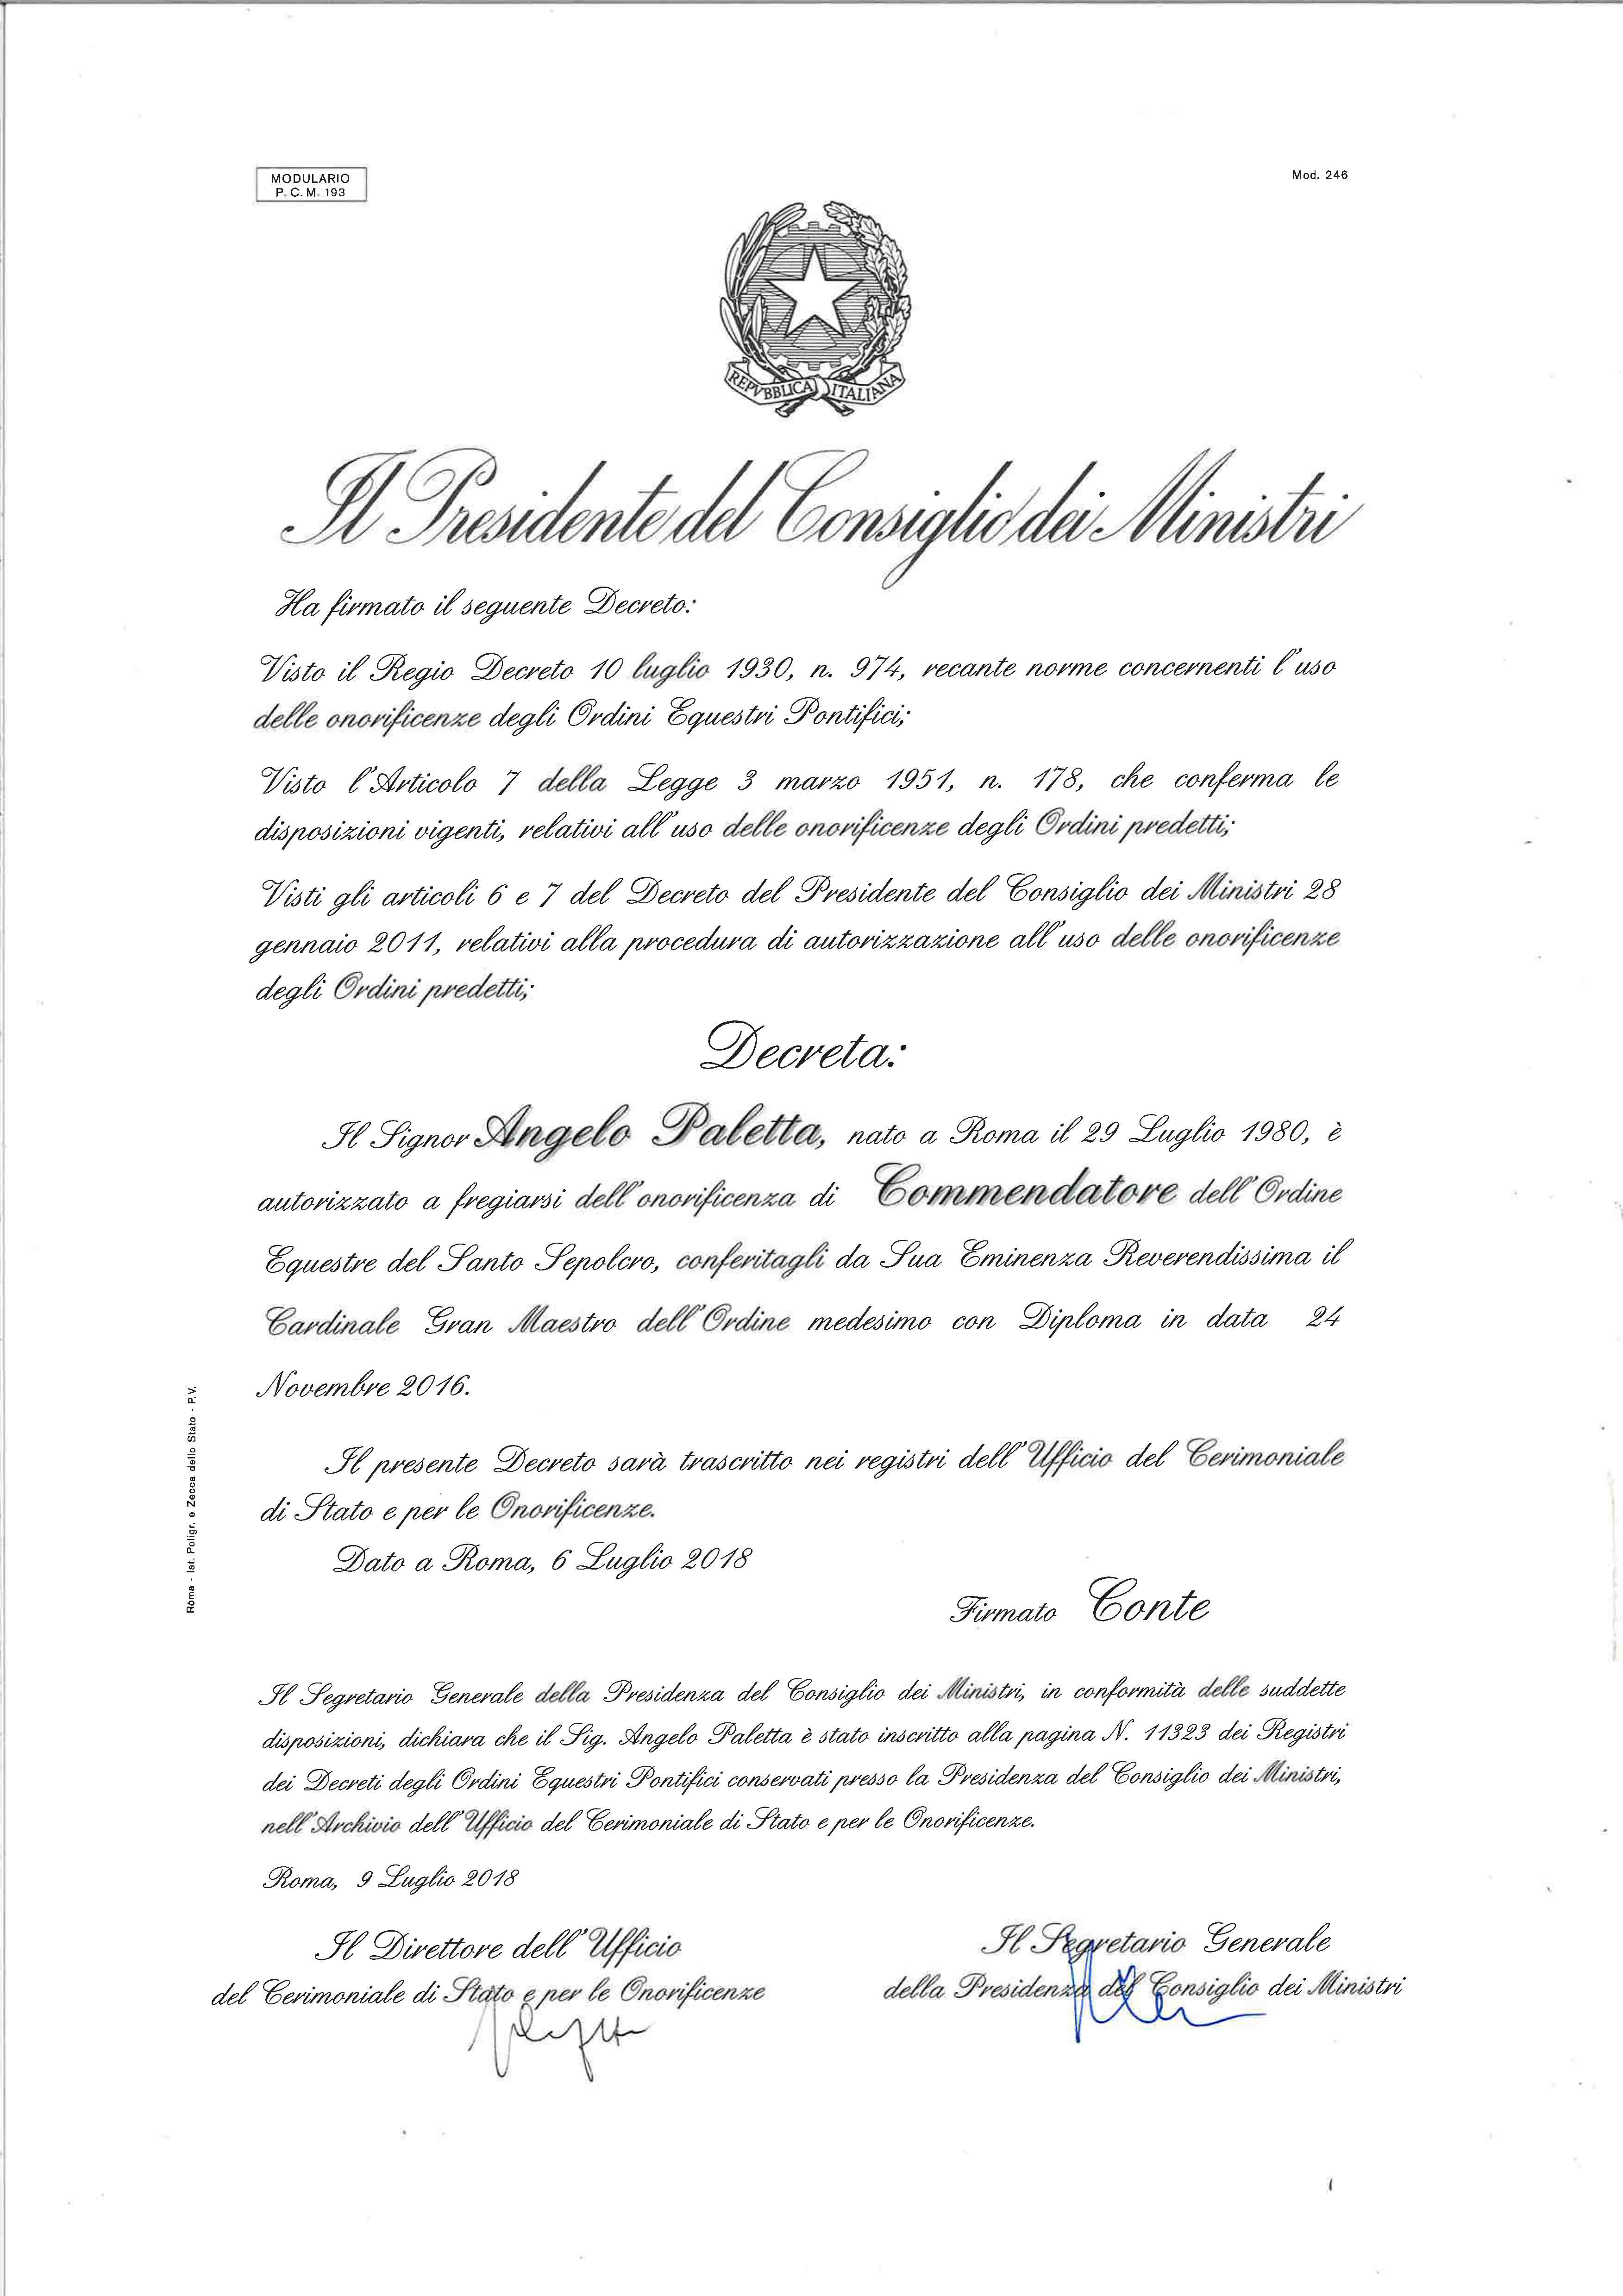 MODULARIO
P. C. M. 193
Mod. 246
REPVBBLICA ITALIANA
Il Presidente del Consiglio dei Ministri
Ha firmato il seguente Decreto:
Visto il Regio Decreto 10 luglio 1930, n. 974, recante norme concernenti l'uso
delle onorificenze degli Ordini Equestri Pontifici;
Visto l'Articolo 7 della Legge 3 marzo 1951, n. 178, che conferma le
disposizioni vigenti, relativi all'uso delle onorificenze degli Ordini predetti;
Visti gli articoli 6 e 7 del Decreto del Presidente del Consiglio dei Ministri 28
gennaio 2011, relativi alla procedura di autorizzazione all'uso delle onorificenze
degli Ordini predetti;
Decreta:
Il Signor Angelo Paletta, nato a Roma il 29 Luglio 1980, è
autorizzato a fregiarsi dell'onorificenza di Commendatore dell'Ordine
Equestre del Santo Sepolcro, conferitagli da Sua Eminenza Reverendissima il
Cardinale Gran Maestro dell'Ordine medesimo con Diploma in data 24
Novembre 2016.
Il presente Decreto sarà trascritto nei registri dell'Ufficio del Cerimoniale
di Stato e per le Onorificenze.
Dato a Roma, 6 Luglio 2018
Firmato Conte
Il Segretario Generale della Presidenza del Consiglio dei Ministri, in conformità delle suddette
disposizioni, dichiara che il Sig. Angelo Paletta è stato inscritto alla pagina N. 11323 dei Registri
dei Decreti degli Ordini Equestri Pontifici conservati presso la Presidenza del Consiglio dei Ministri,
nell'Archivio dell'Ufficio del Cerimoniale di Stato e per le Onorificenze.
Roma, 9 Luglio 2018
Il Direttore dell'Ufficio
del Cerimoniale di Stato e per le Onorificenze
Il Segretario Generale
della Presidenza del Consiglio dei Ministri
Roma - Ist. Poligr. e Zecca dello Stato - P.V.